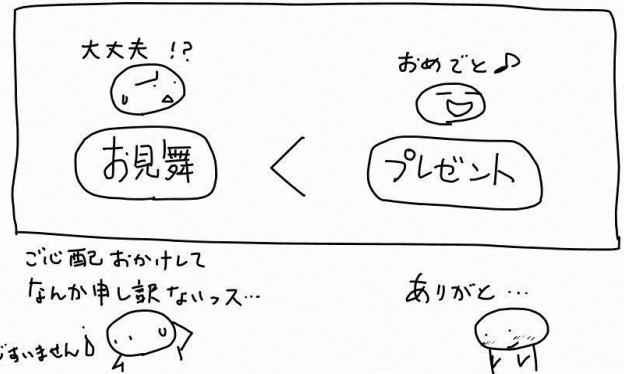 大丈夫 !?
おめでと♪
お見舞 < プレゼント
ご心配おかけして
なんか申し訳ないっス…
ありがと…
すいません